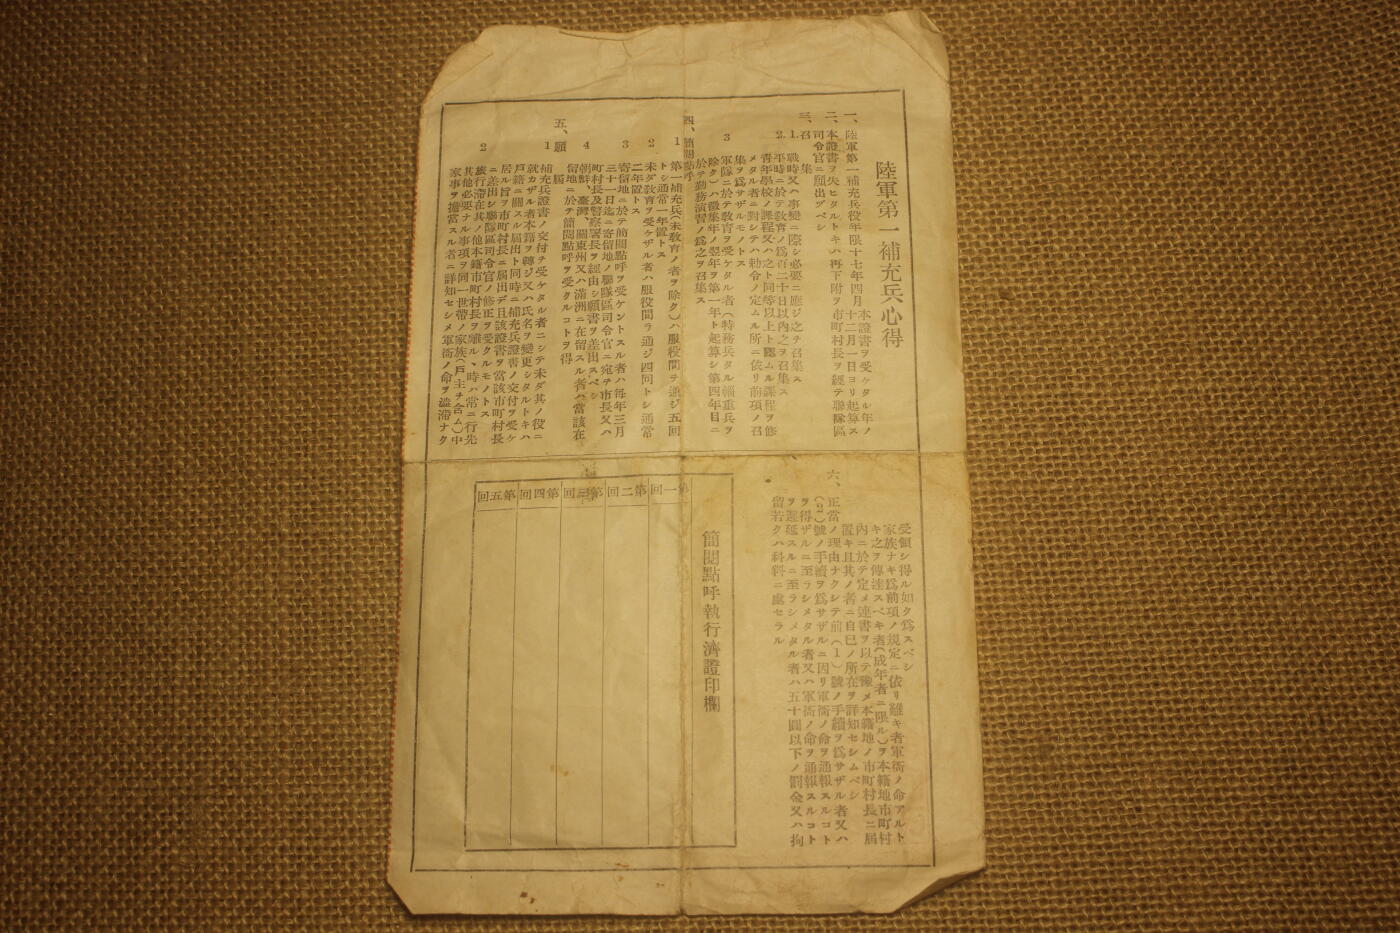 陸軍第一補充兵心得
一、陸軍第一補充兵役年限十七年四月 本證書ヲ受ケタル年ノ十二月一日ヨリ起算ス
二、本證書ヲ失ヒタルトキハ再下附ヲ市町村長ヲ經テ聯隊區
司令官ニ願出ヅベシ
三、召集
1. 戰時又ハ事變ニ際シ必要ニ應ジ之ヲ召集ス
2. 平時ニ於テ教育ノ爲百二十日以內之ヲ召集ス
青年學校ノ課程又ハ之ト同等以上ト認ムル課程ヲ修
メタル者ニ對シテハ勅令ノ定ムル所ニ依リ前項ノ召
集ヲ爲サザルモノトス
3 軍隊ニ於テ教育ヲ受ケタル者(特務兵タル輜重兵ヲ
除ク)ハ徵集年ノ翌年ヲ第一年ト起算シ第四年目ニ
於テ勤務演習ノ爲之ヲ召集ス
四、簡閱點呼
1 第一補充兵(未教育ノ者ヲ除ク)ハ服役間ヲ通ジ五回
トシ通常一年置トス
2 未ダ教育ヲ受ケザル者ハ服役間ヲ通ジ四回トシ通常
二年置トス
3 寄留地ニ於テ簡閱點呼ヲ受ケントスル者ハ每年三月
三十一日迄ニ寄留地ノ聯隊區司令官ニ宛テ市長又ハ
町村長及警察署長ヲ經由シ願書ヲ差出スベシ
4 朝鮮、臺灣、關東州又ハ滿洲ニ在留スル者ハ當該在
留地ニ於テ簡閱點呼ヲ受クルコトヲ得
五、願屆
1 補充兵證書ノ交付ヲ受ケタル者ニシテ未ダ其ノ役ニ
就カザル者本籍ヲ轉ジ又ハ氏名ヲ變更シタルトキハ
戶籍ニ關スル屆出ト同時ニ補充兵證書ノ交付ヲ受ケ
居ル旨ヲ市町村長ニ屆出デ且該證書ヲ當該市町村長
ニ差出シ聯隊區司令官ノ修正ヲ受クルモノトス
2 旅行滯在其ノ他本籍市町村長ヲ離ル丶時ハ常ニ行先
其他必要ナル事項ヲ同一世帶ノ家族(戶主ヲ含ム)中
家事ヲ擔當スル者ニ詳知セシメ軍衙ノ命ヲ澁滯ナク
受領シ得ル如ク爲スベシ
家族ナキ爲前項ノ規定ニ依リ難キ者軍衙ノ命アルト
キ之ヲ傳達スベキ者(成年者ニ限ル)ヲ本籍地市町村
內ニ於テ定メ連書ヲ以テ豫メ本籍地ノ市町村長ニ屆
置キ且其ノ者ニ自己ノ所在ヲ詳知セシムベシ
六、正當ノ理由ナクシテ前(1)號ノ手續ヲ爲サザル者又ハ
(2)號ノ手續ヲ爲サザルニ因リ軍衙ノ命ヲ通報スルコト
ヲ得ザルニ至ラシメタル者又ハ軍衙ノ命ヲ通報スルコト
ヲ遲延スルニ至ラシメタル者ハ五十圓以下ノ罰金又ハ拘
留若クハ科料ニ處セラル
簡閱點呼執行濟證印欄
第一回
第二回
第三回
第四回
第五回